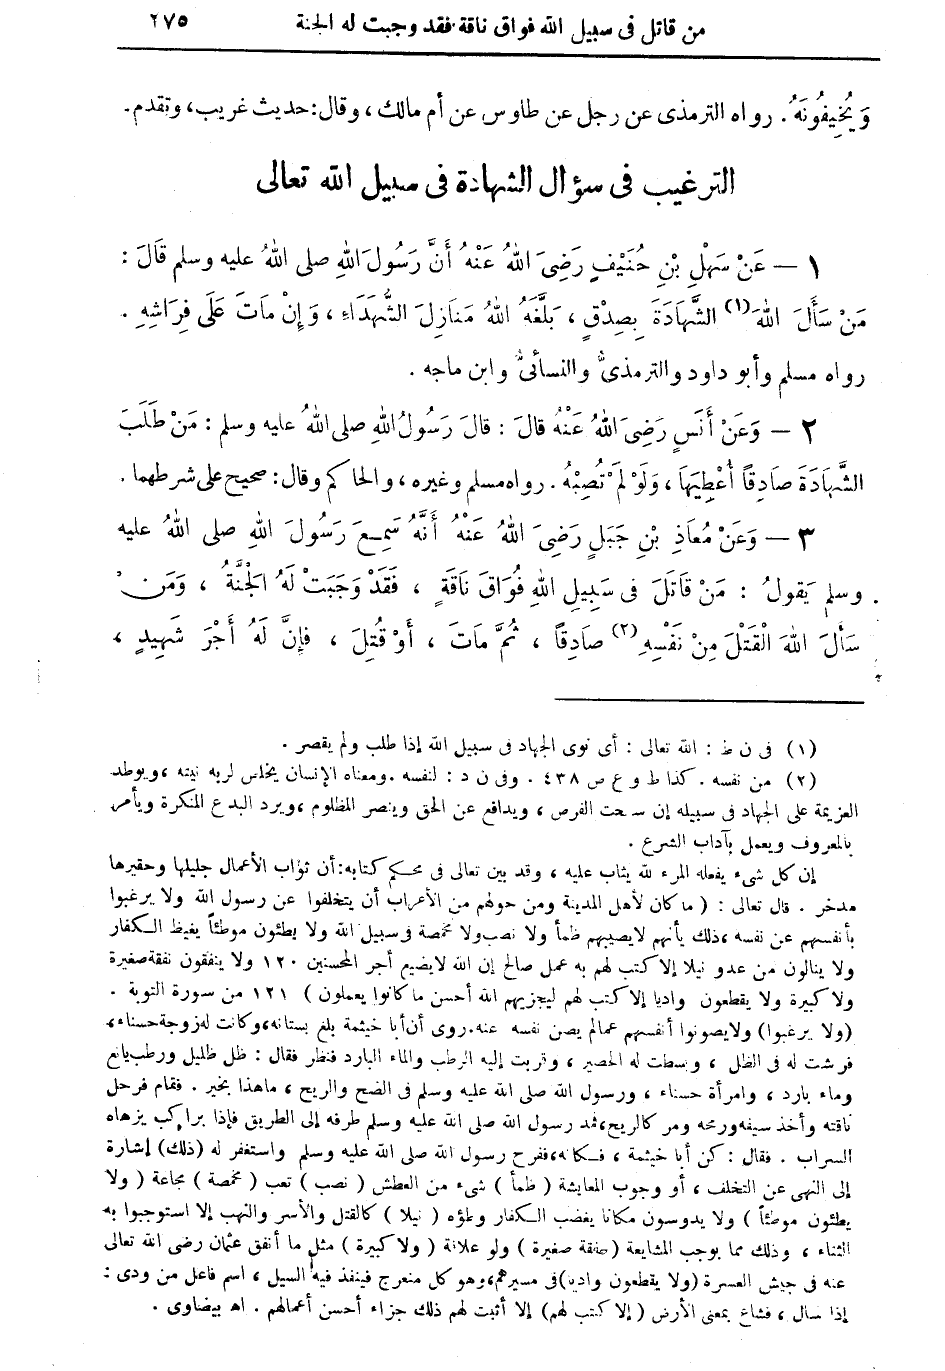 من قاتل فى سبيل الله فواق ناقة فقد وجبت له الجنة ٢٧٥
وَيُخِيفُونَهُ. رواه الترمذى عن رجل عن طاوس عن أم مالك، وقال: حديث غريب، وتقدم.
الترغيب فى سؤال الشهادة فى سبيل الله تعالى
١ — عَنْ سَهْلِ بْنِ حُنَيْفٍ رَضِىَ اللهُ عَنْهُ أَنَّ رَسُولَ اللهِ صلى اللهُ عليه وسلم قَالَ :
مَنْ سَأَلَ اللهَ (١) الشَّهَادَةَ بِصِدْقٍ ، بَلَّغَهُ اللهُ مَنَازِلَ الشُّهَدَاءِ ، وَإِنْ مَاتَ عَلَى فِرَاشِهِ .
رواه مسلم وأبو داود والترمذىُّ والنسائىُّ وابن ماجه .
٢ — وَعَنْ أَنَسٍ رَضِىَ اللهُ عَنْهُ قالَ : قالَ رَسُولُ اللهِ صلى اللهُ عليه وسلم : مَنْ طَلَبَ
الشَّهَادَةَ صَادِقاً أُعْطِيَهَا ، وَلَوْ لَمْ تُصِبْهُ . رواه مسلم وغيره ، والحاكم وقال: صحيح على شرطهما .
٣ — وَعَنْ مُعَاذِ بْنِ جَبَلٍ رَضِىَ اللهُ عَنْهُ أَنَّهُ سَمِعَ رَسُولَ اللهِ صلى اللهُ عليه
وسلم يَقولُ : مَنْ قَاتَلَ فى سَبِيلِ اللهِ فُوَاقَ نَاقَةٍ ، فَقَدْ وَجَبَتْ لَهُ الْجَنَّةُ ، وَمَنْ
سَأَلَ اللهَ الْقَتْلَ مِنْ نَفْسِهِ (٢) صَادِقاً ، ثُمَّ مَاتَ ، أَوْ قُتِلَ ، فَإِنَّ لَهُ أَجْرَ شَهِيدٍ ،
(١) فى ن ط : الله تعالى : أى نوى الجهاد فى سبيل الله إذا طلب ولم يقصر .
(٢) من نفسه . كذا ط و ع ص ٤٣٨ . وفى ن د : لنفسه . ومعناه الإنسان يخلص لربه نيته ، ويوطد
العزيمة على الجهاد فى سبيله إن سنحت الفرص ، ويدافع عن الحق وينصر المظلوم ، ويرد البدع المنكرة ويأمر
بالمعروف ويعمل بآداب الشرع .
إن كل شىء يفعله المرء لله يثاب عليه ، وقد بين تعالى فى محكم كتابه: أن ثواب الأعمال جليلها وحقيرها
مدخر . قال تعالى : ( ما كان لأهل المدينة ومن حولهم من الأعراب أن يتخلفوا عن رسول الله ولا يرغبوا
بأنفسهم عن نفسه ، ذلك بأنهم لا يصيبهم ظمأ ولا نصب ولا مخمصة فى سبيل الله ولا يطئون موطئاً يغيظ الكفار
ولا ينالون من عدو نيلا إلا كتب لهم به عمل صالح إن الله لا يضيع أجر المحسنين ١٢٠ ولا ينفقون نفقة صغيرة
ولا كبيرة ولا يقطعون واديا إلا كتب لهم ليجزيهم الله أحسن ما كانوا يعملون ) ١٢١ من سورة التوبة .
(ولا يرغبوا) ولا يصونوا أنفسهم عما لم يصن نفسه عنه. روى أن أبا خيثمة بلغ بستانه، وكانت له زوجة حسناء،
فرشت له فى الظل ، وبسطت له الحصير ، وقربت إليه الرطب والماء البارد فنظر فقال : ظل ظليل ورطب يانع
وماء بارد ، وامرأة حسناء ، ورسول الله صلى الله عليه وسلم فى الضح والريح ، ما هذا بخير . فقام فرحل
ناقته وأخذ سيفه ورمحه ومر كالريح، فمد رسول الله صلى الله عليه وسلم طرفه إلى الطريق فإذا براكب يزهاه
السراب . فقال : كن أبا خيثمة ، فكانه، ففرح رسول الله صلى الله عليه وسلم واستغفر له (ذلك) إشارة
إلى النهى عن التخلف ، أو وجوب المعايشة ( ظمأ ) شىء من العطش ( نصب ) تعب ( مخمصة ) مجاعة ( ولا
يطئون موطئاً ) ولا يدوسون مكانا يغضب الكفار وطؤه ( نيلا ) كالقتل والأسر والنهب إلا استوجبوا به
الثناء ، وذلك مما يوجب المشايعة (نفقة صغيرة ) ولو علاقة ( ولا كبيرة ) مثل ما أنفق عثمان رضى الله تعالى
عنه فى جيش العسرة (ولا يقطعون واديا) فى مسيرهم، وهو كل منعرج فينفذ فيه السيل ، اسم فاعل من ودى :
إذا سال ، فشاع بمعنى الأرض ( إلا كتب لهم) إلا أثبت لهم ذلك جزاء أحسن أعمالهم . اهـ بيضاوى .